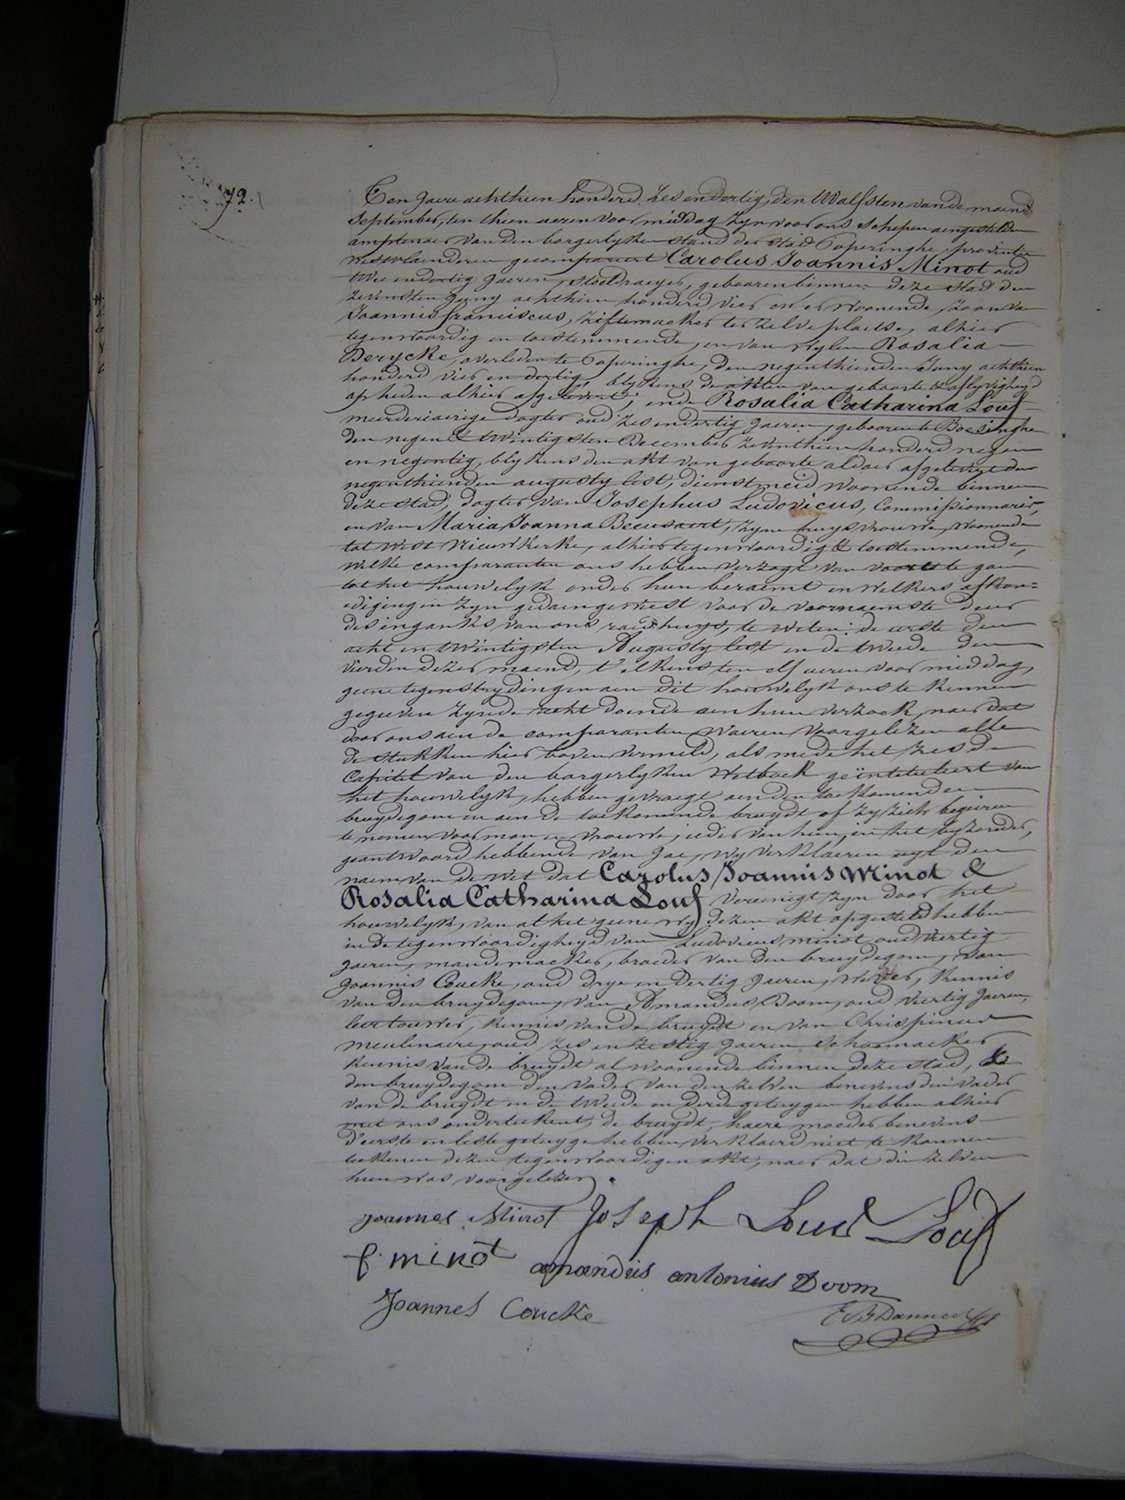 72.
Ten jaere achthien honderd zes en dertig, den twalfsten van de maend
September, ten thien ueren voor middag zyn voor ons schepen aengestelden
amptenaer van den borgerlyken stand der stad Poperinghe, provintie
Westvlaenderen gecompareert Carolus Joannis Minot oud
twee en dertig jaeren, stoeldraeyer, gebooren binnen deze stad den
juny achthien honderd vier en er woonende, zoon van
Joannis franciscus, ziftemaeker ter zelve plaetse, alhier
tegenwoordig en toestemmende, en van wylen Rosalia
Derycke, overleden te Poperinghe, den negenthienden Juny achthien
honderd vier en dertig, blykens de akten van geboorte & aflyvigheyd
op heden alhier afgelevert; ende Rosalia Catharina Louf
meerderjaerige dogter oud zes en dertig jaeren, gebooren te Boesinghe
den negen & twintigsten December zeventhien honderd negen
en negentig, blykens den akt van geboorte aldaer afgelevert den
negenthienden augusty lest, dienstmeid woonende binnen
deze stad, dogter van Josephus Ludovicus, Commissionnaris,
en van Maria Joanna Beeusaert, zyne huysvrouwe, woonende
tot West Nieuwkerke, alhier tegenwoordig & toestemmende,
welke comparanten ons hebben verzogt van voorts te gaen
tot het houwelyk onder hun beraemt en welkers afkon=
digingen zyn gedaen geweest voor de voornaemste deur
des ingangs van ons raedhuys, te weten: de eerste den
acht en twintigsten Augusty lest en de tweede den
vierden dezer maend, t'elkens ten elf ueren voor middag,
geene tegenstrydingen aen dit houwelyk ons te kennen
gegeven zynde recht doende aen hun verzoek, naer dat
door ons aen de comparanten waeren voorgelezen alle
de stukken hier boven vermeld, als mede het zesde
Capitel van den borgerlyken Wetboek geïntituleert van
het houwelyk, hebben gevraegt aen den toekomenden
bruydegom en aen de toekomende bruydt of zy zich begeeren
te nemen voor man en vrouwe; ieder van hun, in het byzonder,
geantwoord hebbende van Jae, wy verklaeren uyt den
naem van de Wet dat Carolus Joannis Minot &
Rosalia Catharina Louf vereenigt zyn door het
houwelyk, van al het geene wy dezen akt opgesteld hebben
in de tegenwoordigheyd van Ludovicus minot oud veertig
jaeren, mandemaeker, broeder van den bruydegom, van
Joannis Coucke, oud drye en dertig jaeren, wever, kennis
van den bruydegom, van Amandus Doom, oud viertig jaeren,
leertouwer, kennis van de bruydt en van Chrispinus
meulenaere, oud zes en zestig jaeren schoenmaeker
kennis van de bruydt al woonende binnen deze stad, &
den bruydegom den vader van den zelven benevens den vader
van de bruydt en de tweede en derde getuygen hebben alhier
met ons onderteekent; de bruydt, haere moeder benevens
d'eerste en leste getuyge hebben verklaerd niet te konnen
teekenen dezen tegenwoordigen akt, naer dat die zelven
hun was voorgelezen.
joannes Minot Joseph Louis Louf
f. minot amandus antonius Doom
Joannes Coucke